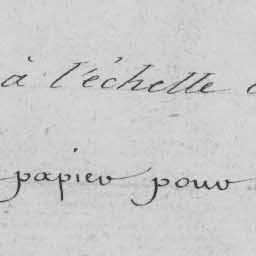 à l'échelle
papier pour